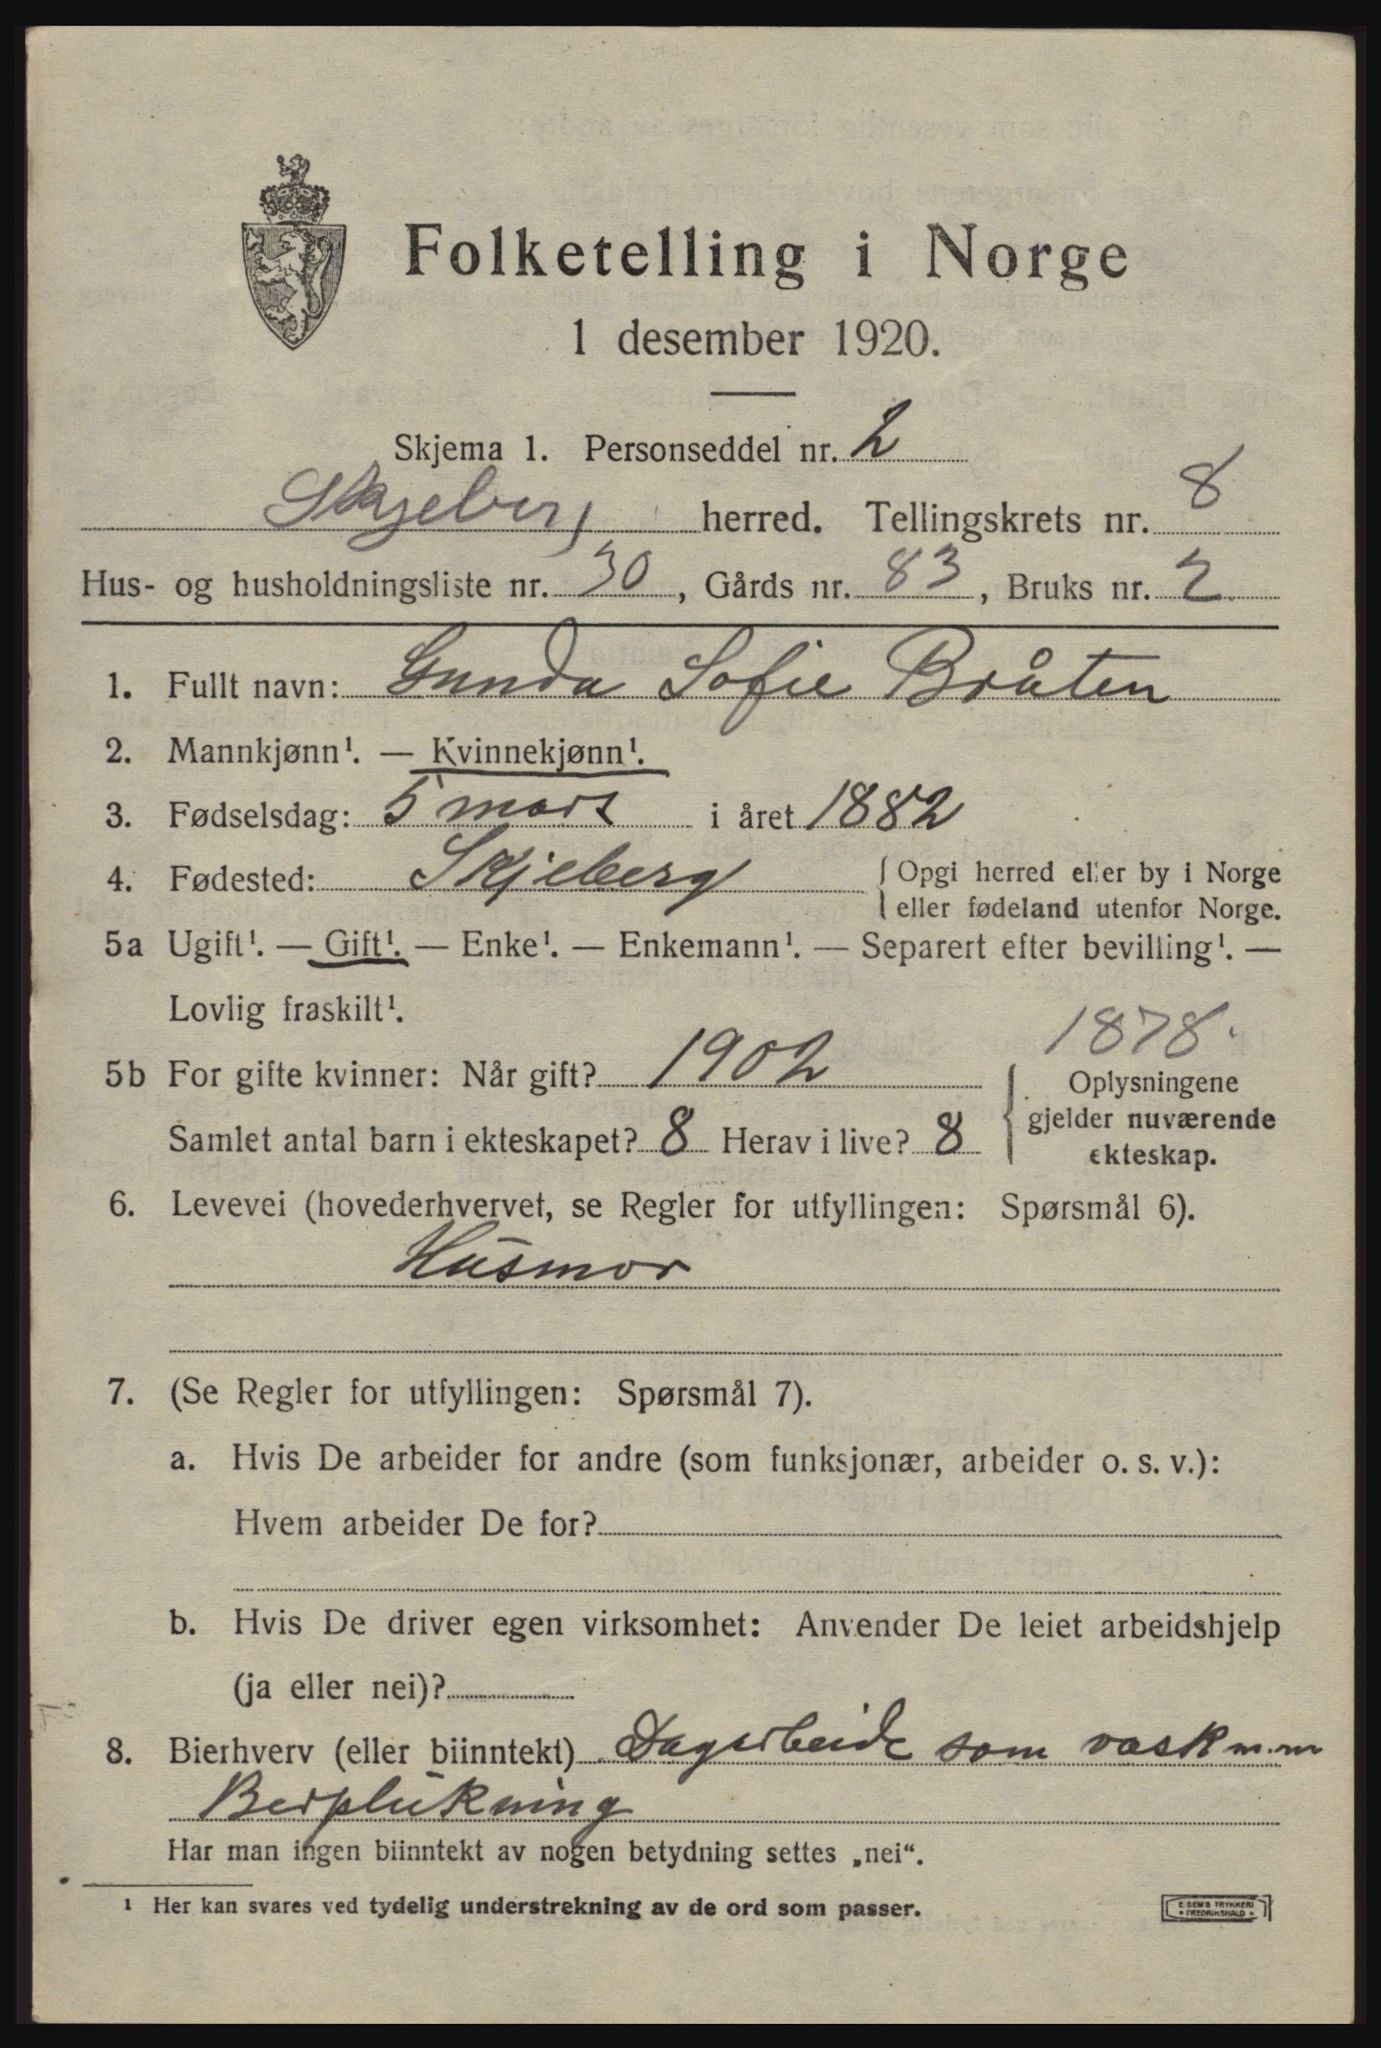 Folketelling i Norge
1 desember 1920.
Skjema 1. Personseddel nr. 2
Skjeberg herred. Tellingskrets nr. 8
Hus- og husholdningsliste nr. 30, Gårds nr. 83, Bruks nr. 2
1. Fullt navn: Gunda Sofie Bråten
2. Mannkjønn¹. — Kvinnekjønn¹.
3. Fødselsdag: 5 mars i året 1882
4. Fødested: Skjeberg { Opgi herred eller by i Norge
eller fødeland utenfor Norge.
5a Ugift¹. — Gift¹. — Enke¹. — Enkemann¹. — Separert efter bevilling¹. —
Lovlig fraskilt¹.
1878.
5b For gifte kvinner: Når gift? 1902 { Oplysningene
gjelder nuværende
Samlet antal barn i ekteskapet? 8 Herav i live? 8
ekteskap.
6. Levevei (hovederhvervet, se Regler for utfyllingen: Spørsmål 6).
Husmor
7. (Se Regler for utfyllingen: Spørsmål 7).
a. Hvis De arbeider for andre (som funksjonær, arbeider o. s. v.):
Hvem arbeider De for?
b. Hvis De driver egen virksomhet: Anvender De leiet arbeidshjelp
(ja eller nei)?
8. Bierhverv (eller biinntekt) Dagarbeide som vask m.m
Berplukning
Har man ingen biinntekt av nogen betydning settes „nei“.
¹ Her kan svares ved tydelig understrekning av de ord som passer.
E. SEM'S TRYKKERI
• FREDRIKSHALD •